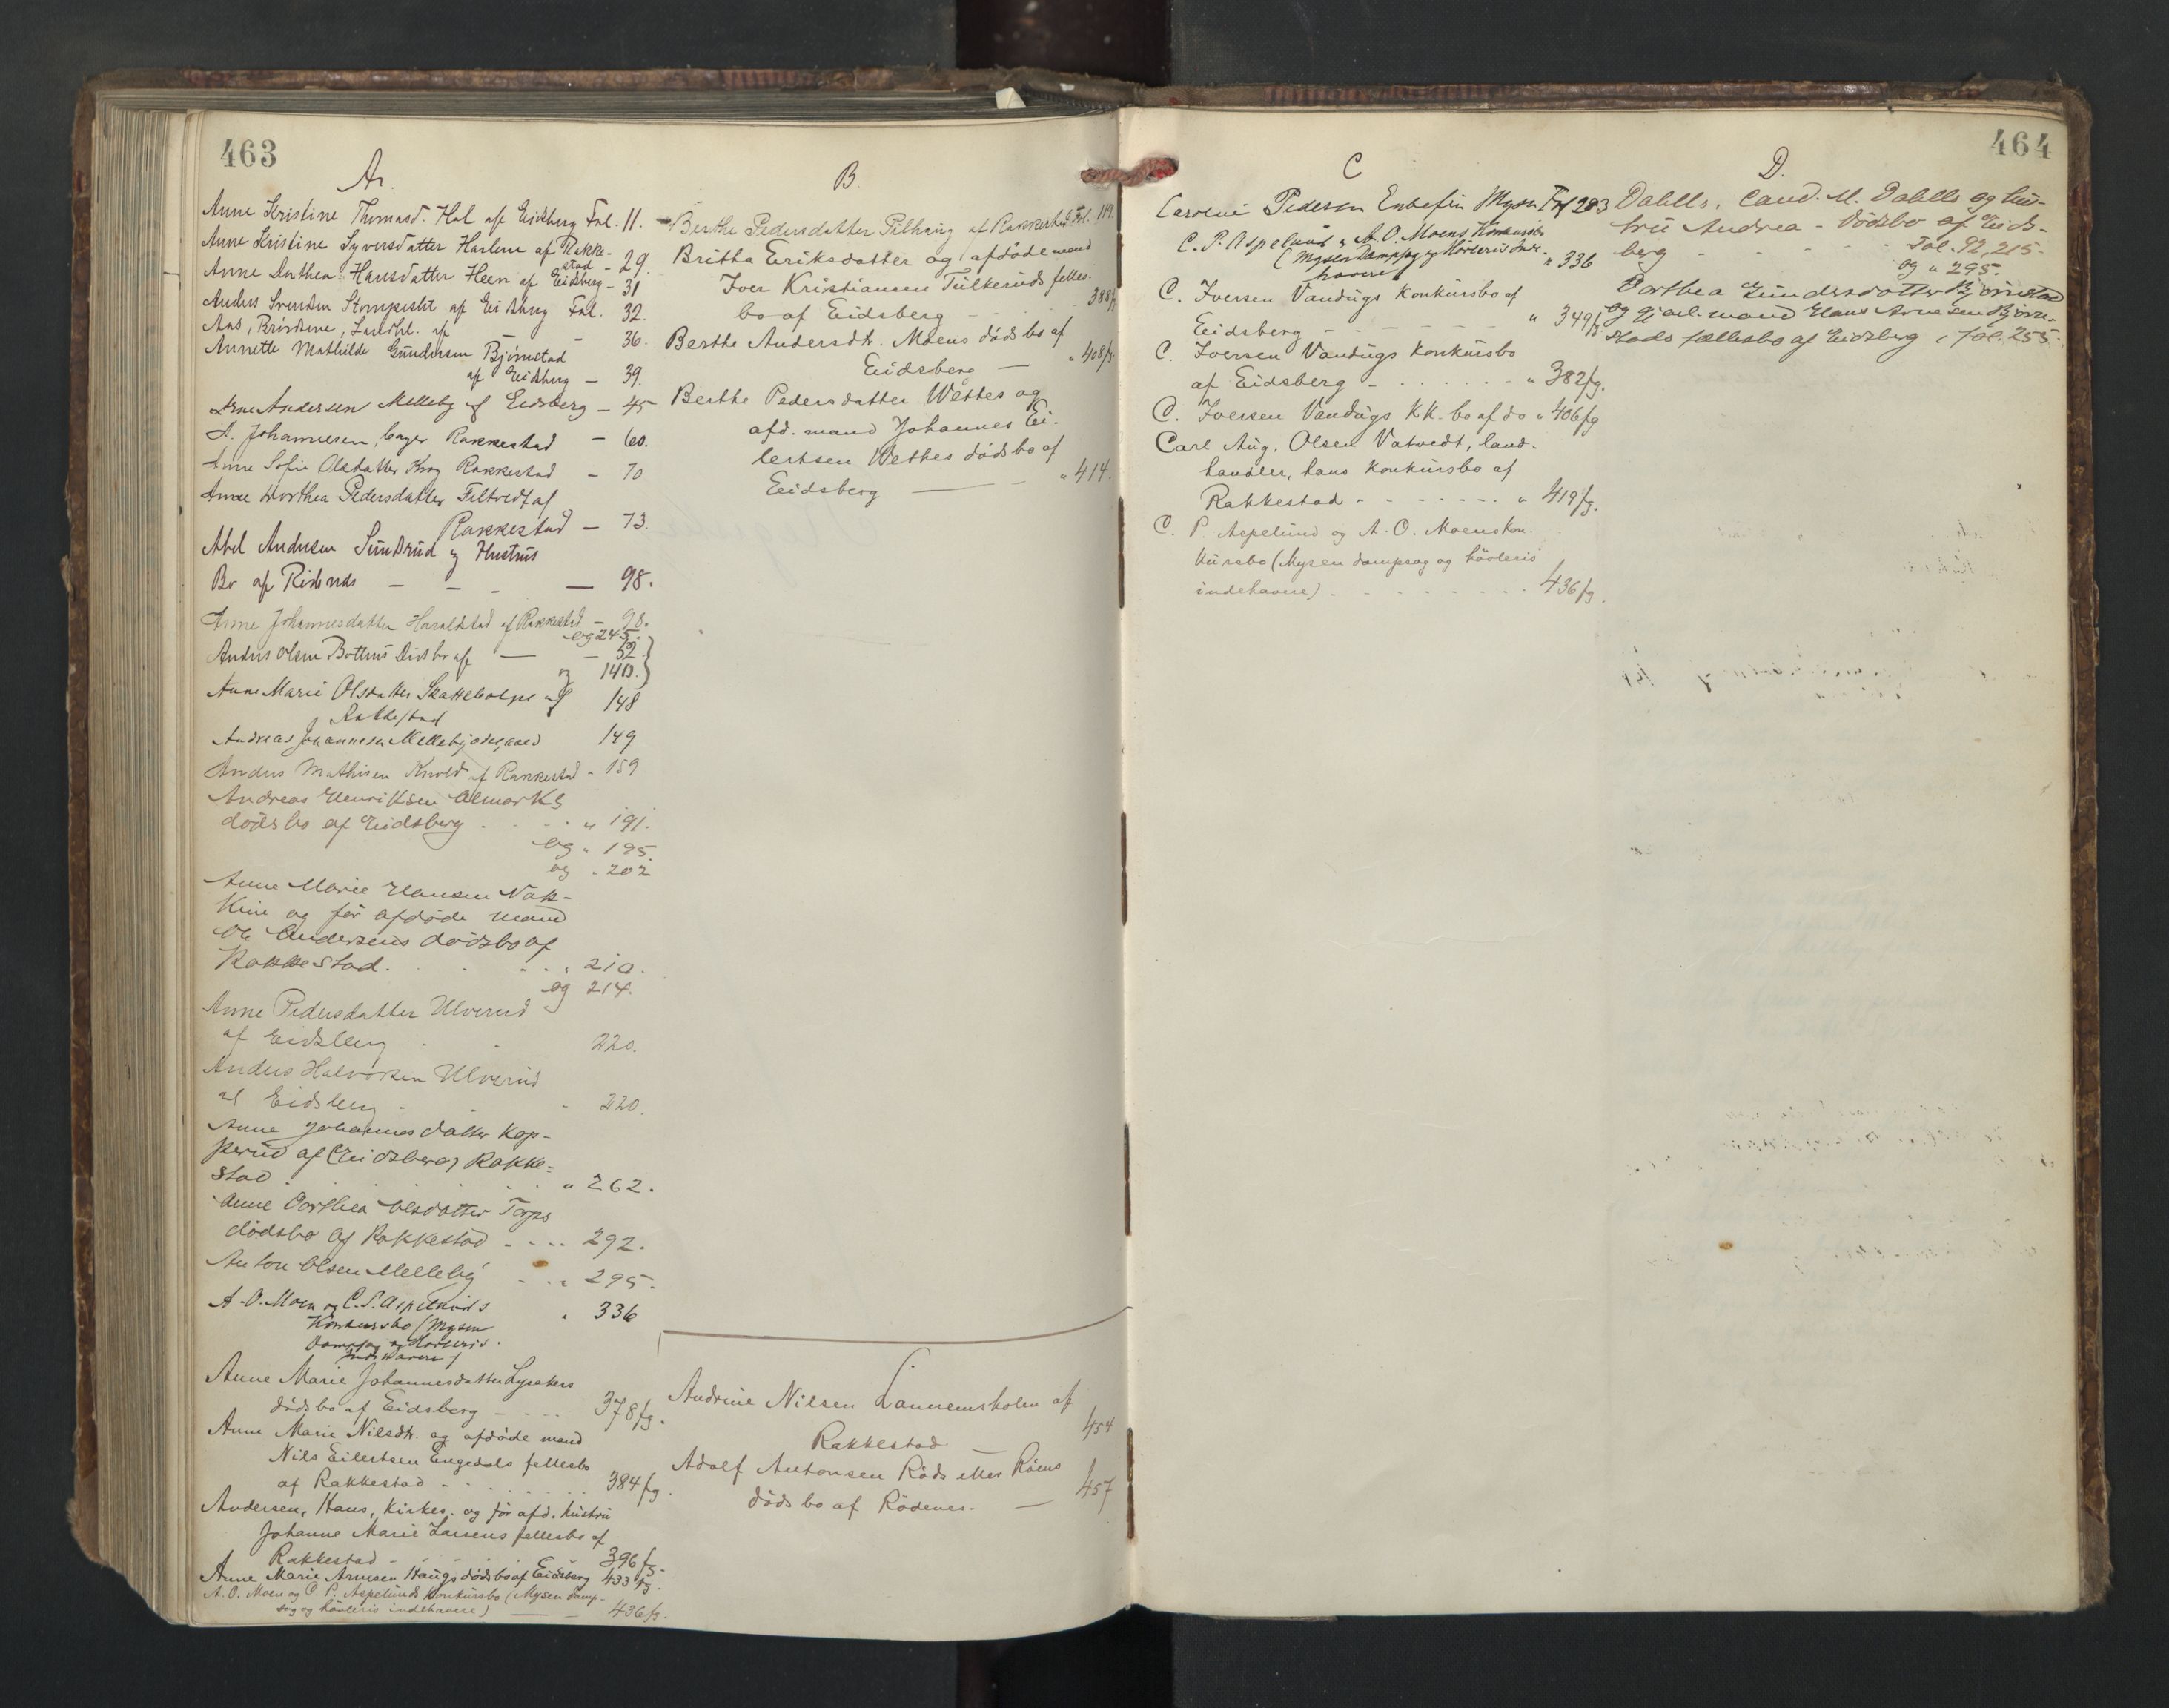 463
A.
Anne Kristine Thomasd. Hol af Eidsberg Fol. 11.
Anne Kristine Syversdatter Harlem af Rakke-
stad - 29.
Anne Dorthea Hansdatter Heen af Eidsberg - 31
Anders Svendsen af Eidsberg Fol. 32.
Aas, Brödrene, Landhl. af - 36.
Annette Mathilde Gundersen Björnstad
af Eidsberg - 39.
Arne Andersen Melleby af Eidsberg - 45
A. Johannesen, bager Rakkestad - 60.
Anne Sofie Olsdatter Krog Rakkestad - 70
Anne Dorthea Pedersdatter af
Rakkestad - 73.
Abel Andersen Sundrud og Hustrus
Bo af Rödenes - - - - 98.
Anne Johannesdatter Haraldstad af Rakkestad - 98.
og 245.
Anders Olsen Dödsbo af - - 52.}
og 140.}
Anne Marie Olsdatter af 148
Rakkestad
Andreas Johannesen Mellebyödegaard 149
Anders Mathisen Knold af Rakkestad - 159
Andreas Henriksen Almarks
dödsbo af Eidsberg . . . " 191.
og " 195.
og " 202
Anne Marie Hansen Nak-
kim og för afdöde mand
Ole Andersens dödsbo af
Rakkestad. . . . " 210.
og 214.
Anne Pedersdatter Ulverud
af Eidsberg . . 220.
Anders Halvorsen Ulverud
af Eidsberg - - - 220.
Anne Johannesdatter Kop-
perud af Eidsberg, Rakke-
stad . . . . . " 262.
Anne Dorthea Olsdatter Torps
dödsbo af Rakkestad - - - - 292.
Anton Olsen Melleby - . . " 295.
A. O. Moen og C. P. Aspelunds " 336
Konkursbo (Mysen
Dampsag og Hövleris
Indehavere)
Anne Marie Johannesdatter Lysakers
dödsbo af Eidsberg - - - - 378 fg.
Anne Marie Nilsdtr. og afdöde mand
Nils Eilertsen Engedals fellesbo
af Rakkestad - - - - - 384 fg.
Andersen, Hans, Kirkes. og för afd. hustru
Johanne Marie Larsens fellesbo af
Rakkestad - 396 fg.
Anne Marie Arnesen Haugs dödsbo af Eidsberg 433 fg.
A. O. Moen og C. P. Aspelunds konkursbo (Mysen damp-
sag og hövleris indehavere) — — 436 fg.
B.
Berthe Pedersdatter af Rakkestad Fol. 119.
Britha Eriksdatter og afdöde mand
Iver Kristiansen Tulkeruds felles-
bo af Eidsberg - - - 388 fg
Berthe Andersdtr. Moens dödsbo af
Eidsberg — " 408 fg
Berthe Pedersdatter Wettes og
afd. mand Johannes Ei-
lertsen Wettes dödsbo af
Eidsberg — - " 414.
Andrine Nilsen af
Rakkestad — 454
Adolf Antonsen Röds eller Röens
dödsbo af Rödenes. — 457
464
C
Caroline Pedersen Mysen Fol 283
C. P. Aspelund & A. O. Moens Konkursbo
(Mysen Dampsag og Hövleris Inde-
havere) " 336
C. Iversen Vandugs konkursbo af
Eidsberg - - - - - - " 349 fg.
C. Iversen Vandugs konkursbo
af Eidsberg - . . . . . - " 382 fg.
C. Iversen Vandugs KK. bo af do " 406 fg
Carl Aug. Olsen Vatvedt, land-
handler, hans konkursbo af
Rakkestad - - - - - - . " 419 fg.
C. P. Aspelund og A. O. Moens kon-
kursbo (Mysen dampsag og hövleris
indehavere) . - - - - - - - - 436 fg.
D.
Dahlls, Cand. M. Dahlls og hus-
tru Andrea - Dödsbo af Eids-
berg - - - - Fol. 92, 215.
og " 295.
Dorthea Gundersdatter Björnstad
og gjenl. mand Hans Arnesen Björn-
stads fællesbo af Eidsberg, Fol. 255.